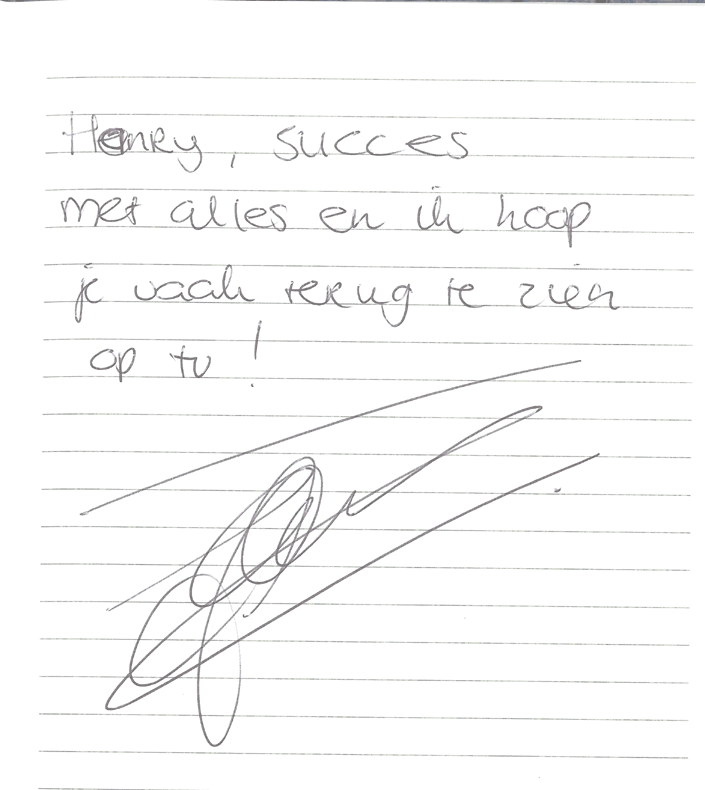 Henry, succes
met alles en ik hoop
je vaak terug te zien
op tv!